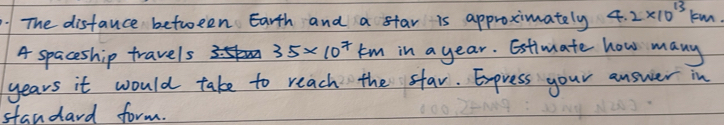 . The distance between Earth and a star is approximately 4.2×10¹³ km.
A spaceship travels 35×10⁷ km in a year. Estimate how many
years it would take to reach the star. Express your answer in
standard form.